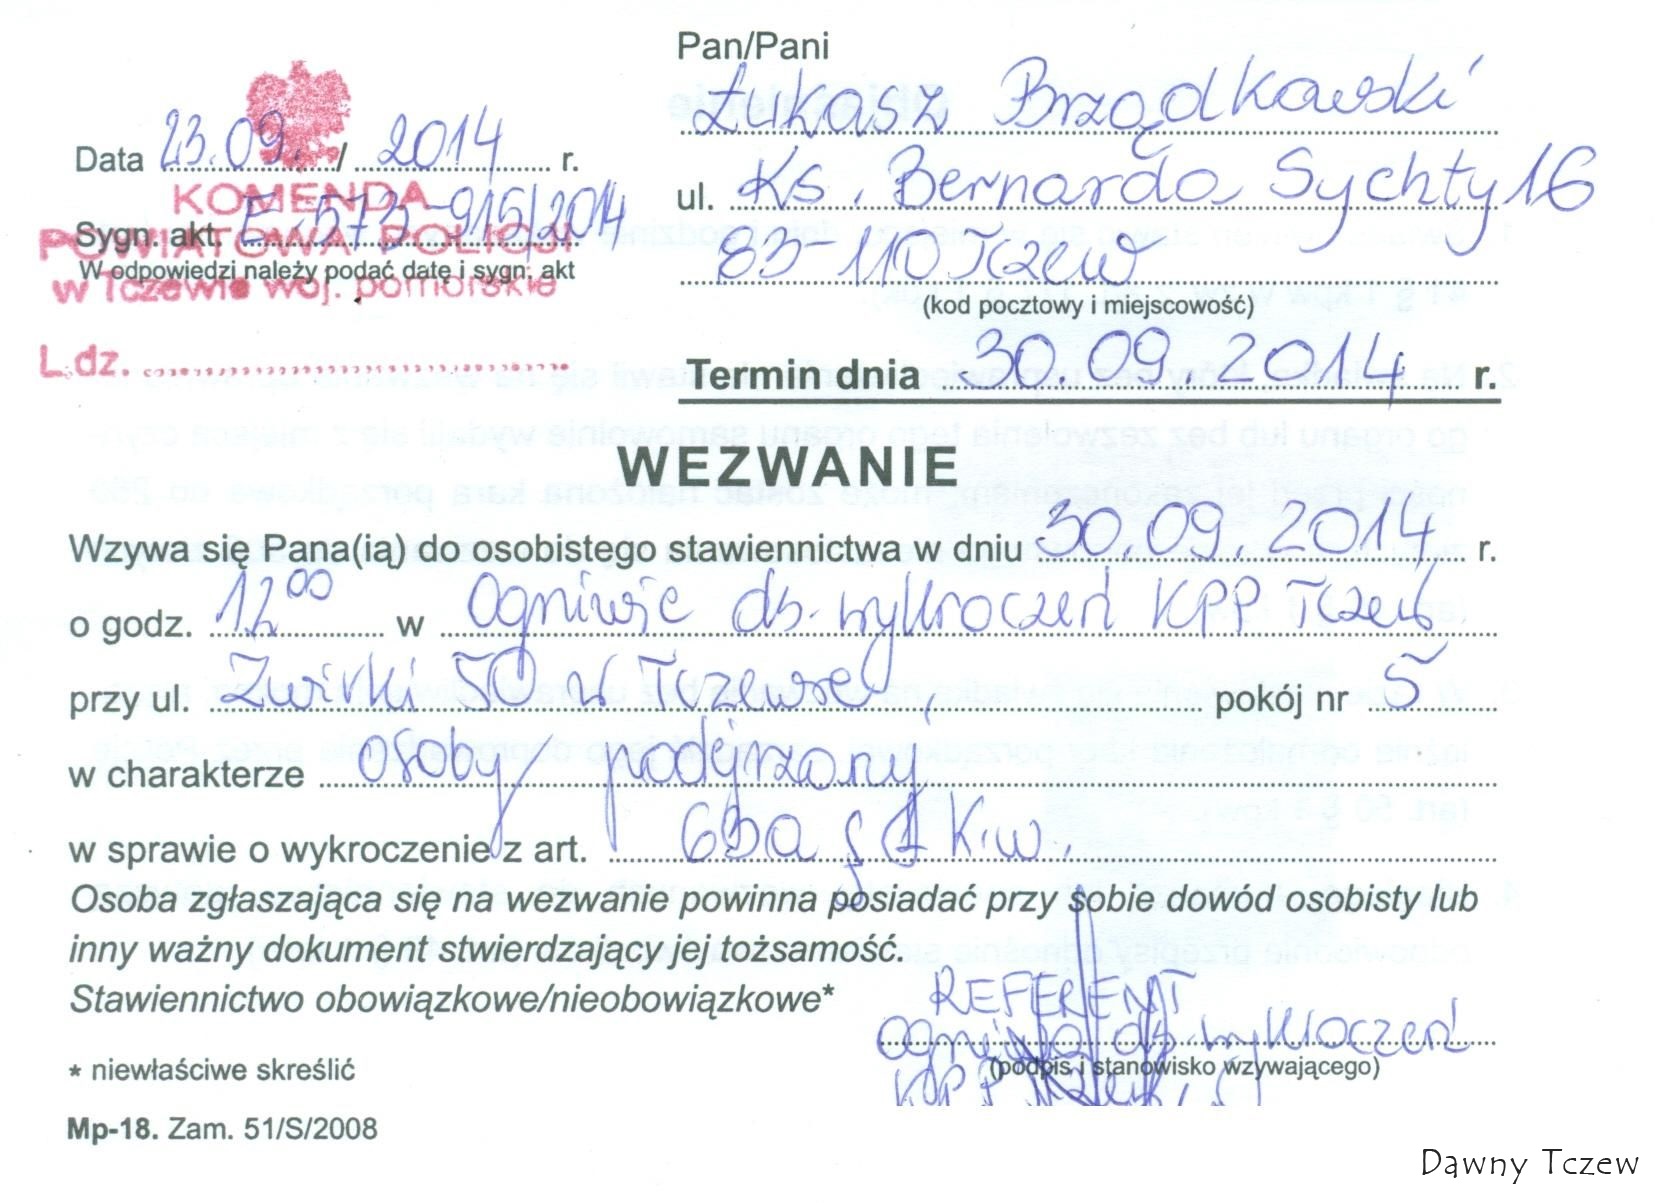 Pan/Pani
Łukasz Brządkowski
Data 23.09. / 2014 r.
ul. Ks. Bernarda Sychty 16
KOMENDA
Sygn. akt. E-573-915/2014
POWIATOWA POLICJI
W odpowiedzi należy podać datę i sygn. akt
w Tczewie woj. pomorskie
83-110 Tczew
(kod pocztowy i miejscowość)
L.dz.
Termin dnia 30.09.2014 r.
WEZWANIE
Wzywa się Pana(ią) do osobistego stawiennictwa w dniu 30.09.2014 r.
o godz. 12 00 w Ogniwie ds. wykroczeń KPP Tczew
przy ul. Żwirki 50 w Tczewie, pokój nr 5
w charakterze osoby podejrzanej
w sprawie o wykroczenie z art. 63a § 1 K.w.
Osoba zgłaszająca się na wezwanie powinna posiadać przy sobie dowód osobisty lub
inny ważny dokument stwierdzający jej tożsamość.
Stawiennictwo obowiązkowe/nieobowiązkowe*
REFERENT
ogniwa ds. wykroczeń
(podpis i stanowisko wzywającego)
KPP Tczew
* niewłaściwe skreślić
Mp-18. Zam. 51/S/2008
Dawny Tczew